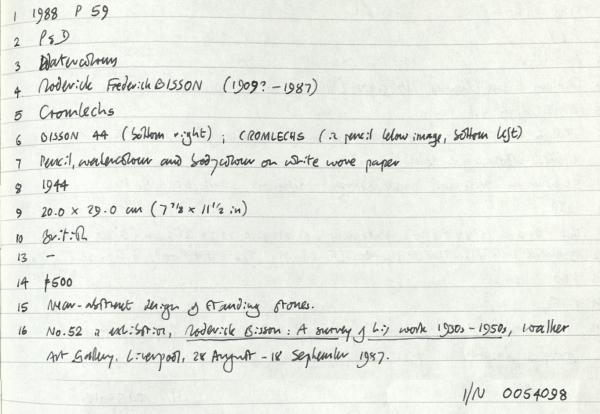 1 1988 P 59
2 P & D
3 Watercolours
4 Roderick Frederick BISSON (1909? - 1987)
5 Cromlechs
6 BISSON 44 (bottom right); CROMLECHS (in pencil below image, bottom left)
7 Pencil, watercolour and bodycolour on white wove paper
8 1944
9 20.0 x 29.0 cm (7 7/8 x 11 1/2 in)
10 British
13 -
14 £500
15 Near-abstract design of standing stones.
16 No. 52 in exhibition, Roderick Bisson: A survey of his work 1930s - 1950s, Walker
Art Gallery, Liverpool, 28 August - 18 September 1987.
I/N 0054098